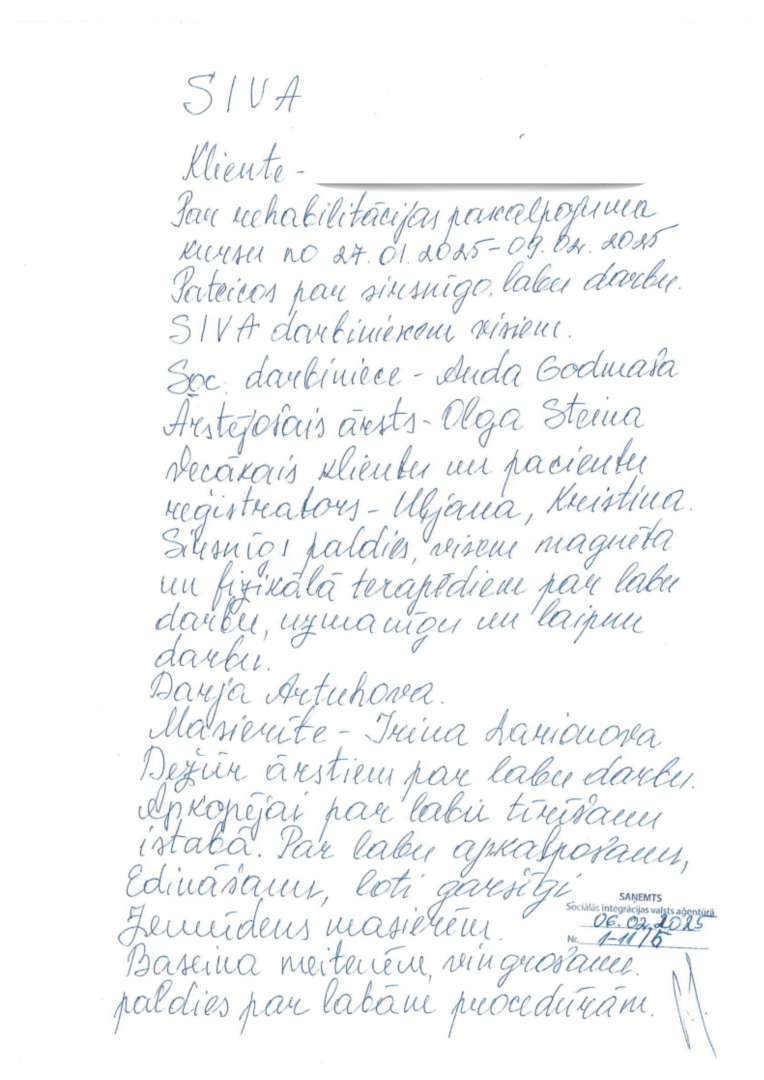 SIVA
Kliente -
Par rehabilitācijas pakalpojuma
kursu no 27.01.2025-09.02.2025
Pateicos par sirsnīgo, labu darbu.
SIVA darbiniekem visiem.
Soc. darbiniece - Anda Godmaša
Ārstējošais ārsts - Olga Šteina
Vecākais klientu un pacientu
reģistrators - Uļjana, Kristīna.
Sirsnīgs paldies, visem magnēta
un fizikālā terapēdiem par labu
darbu, uzmanīgu un laipnu
darbu.
Darja Artuhova.
Masierīte - Irina Larionova
Dežūr ārstiem par labu darbu.
Apkopējai par labu tīrīšanu
istabā. Par labu apkalpošanu,
Edināšanu, ļoti garsīgi
Zemūdens masierēm.
Baseina meitenēm, vingrošanu.
paldies par labām procedūrām.
SAŅEMTS
Sociālās integrācijas valsts aģentūrā
06.02.2025
Nr. 1-11/5